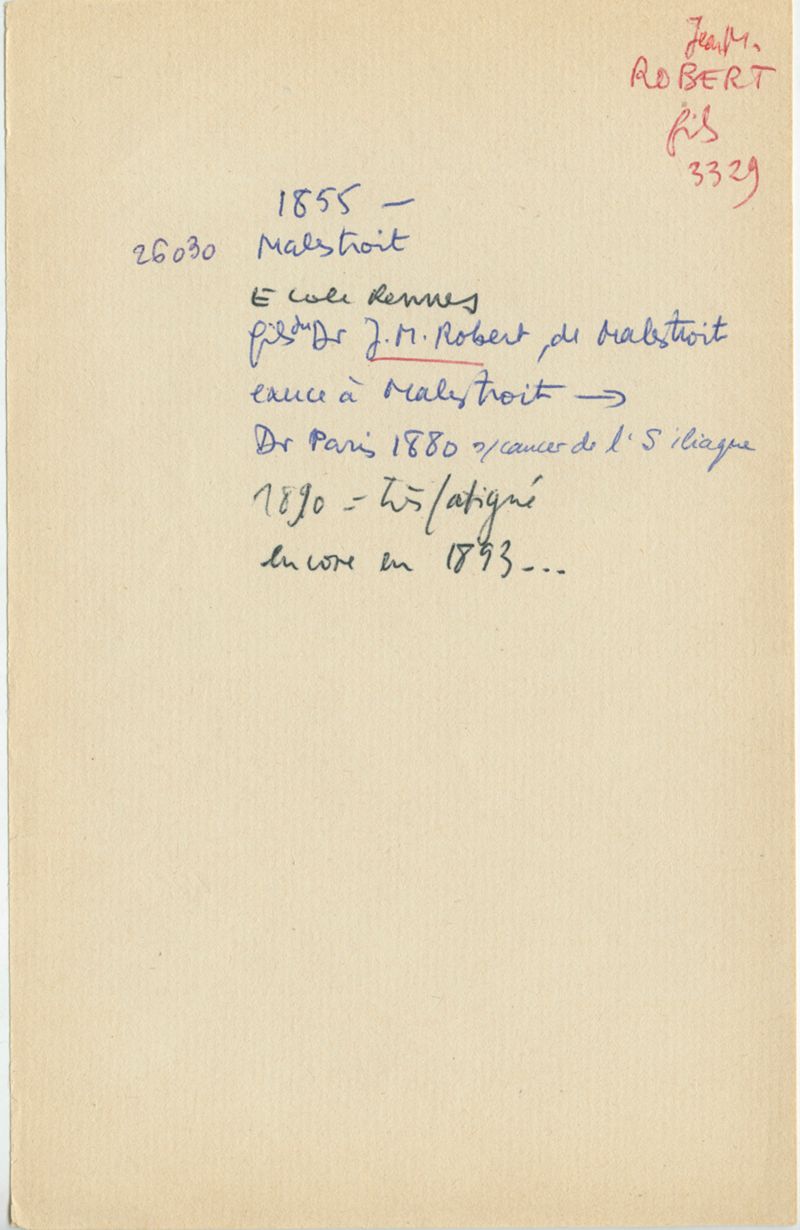 Jean M.
ROBERT
fils
3329
1855 –
26030 Malestroit
Ecole Rennes
fils du Dr J.M. Robert, de Malestroit
exerce à Malestroit →
Dr Paris 1880 s/cancer de l'S iliaque
1890 = très fatigué
encore en 1893...